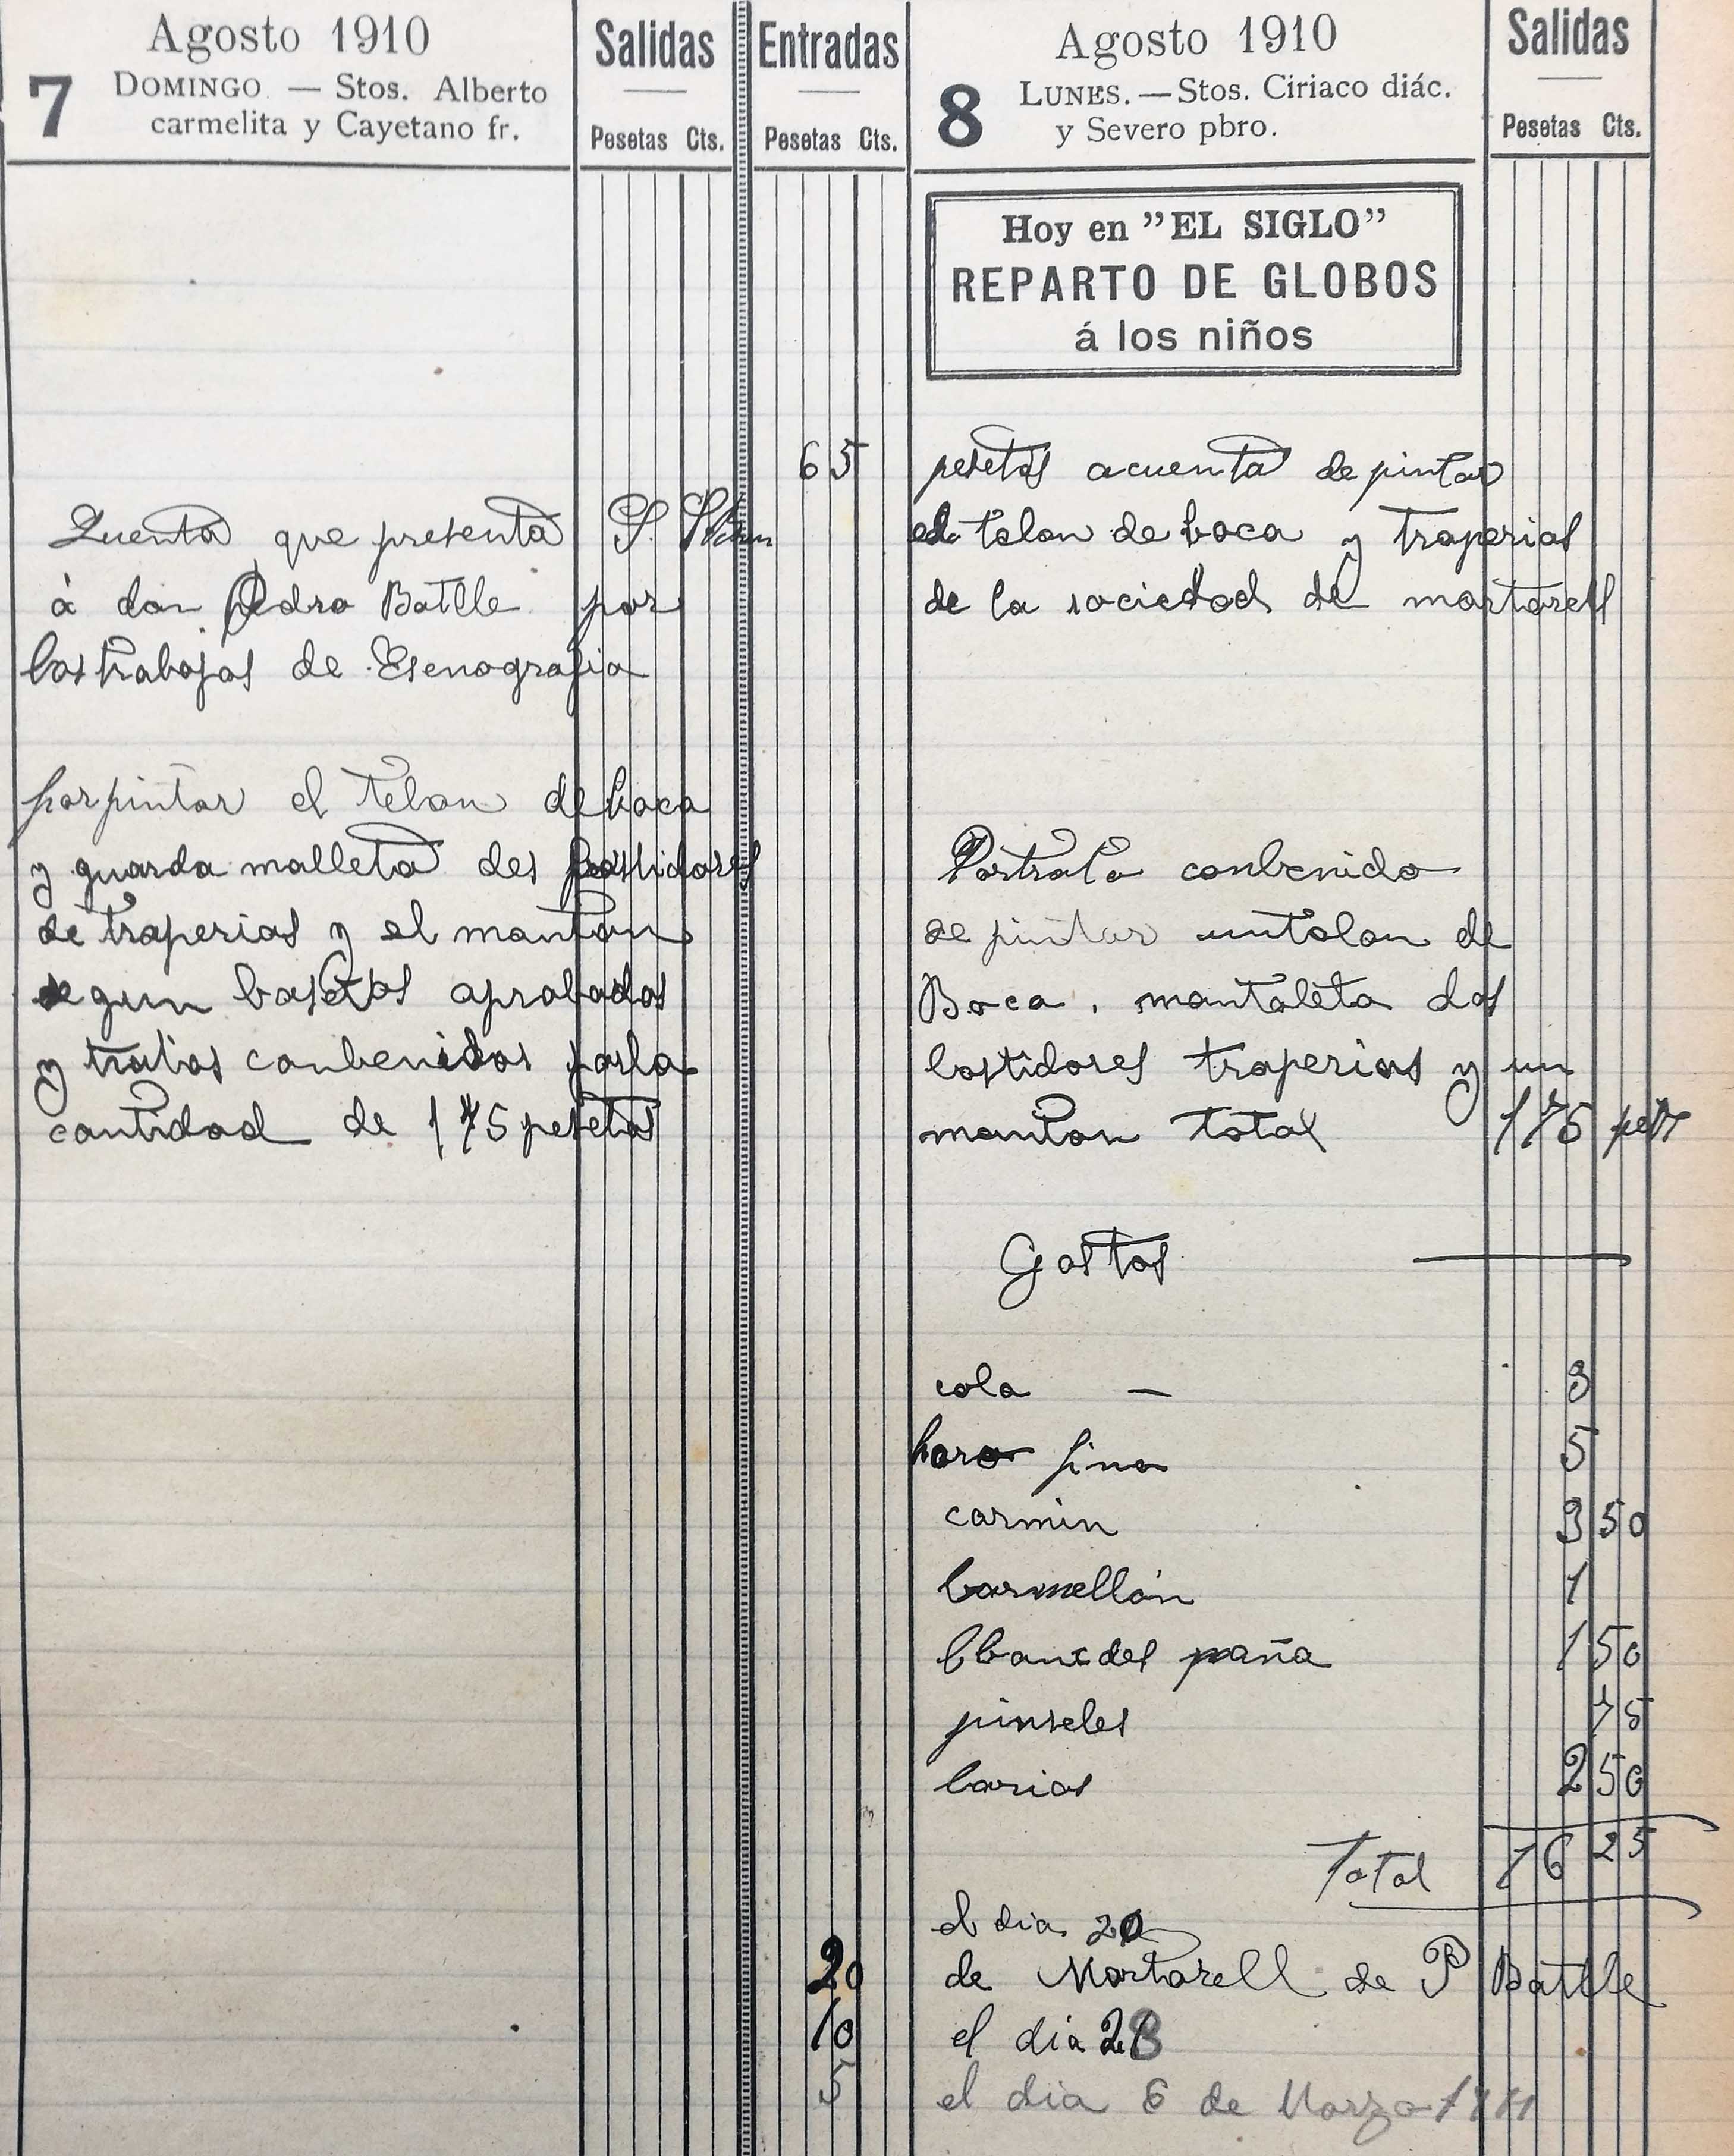 Agosto 1910
7 DOMINGO. — Stos. Alberto
carmelita y Cayetano fr.
Salidas
Pesetas Cts.
Entradas
Pesetas Cts.
Quenta que presenta S.
à don Pedro Batlle por
los trabajos de Esenografia
por pintar el telon de boca
y guarda malleta des bastidores
de traperias y el manton
segun basetos aprobados
y tratos conbenidos por la
cantidad de 175 pesetas
Agosto 1910
8 LUNES. — Stos. Ciriaco diác.
y Severo pbro.
Salidas
Pesetas Cts.
Hoy en "EL SIGLO"
REPARTO DE GLOBOS
á los niños
65 pesetas acuenta de pintar
el telon de boca y traperias
de la sociedad de martorell
conbenido
de pintar un talon de
Boca. mantaleta dos
bastidores traperias y un
manton total 175 pets
Gastos
cola — 3
horo fino 5
carmin 3 50
barmellón 1
1 50
pinseles 75
barios 2 50
Total 16 25
el dia 20
20 de Martorell de P Batlle
10 el dia 28
5 el dia 6 de Marzo 1911